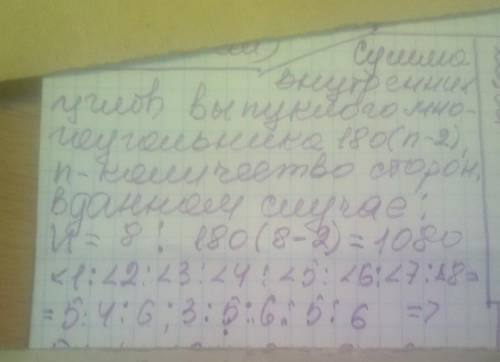 Сумма
внутренних
углов выпуклого мно-
гоугольника 180(n-2),
n-количество сторон,
в данном случае:
n = 8 : 180(8-2)=1080
<1:<2:<3:<4:<5:<6:<7:<8=
=5:4:6;3:5:6:5:6 =>